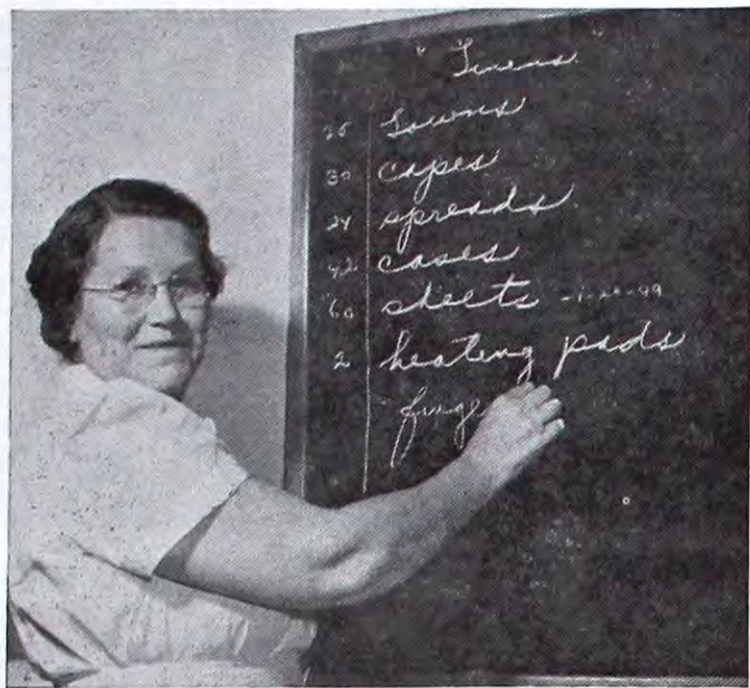 " Linens "
26 Gowns
30 capes
24 spreads
42 cases
60 sheets -1-24-49
2 heating pads